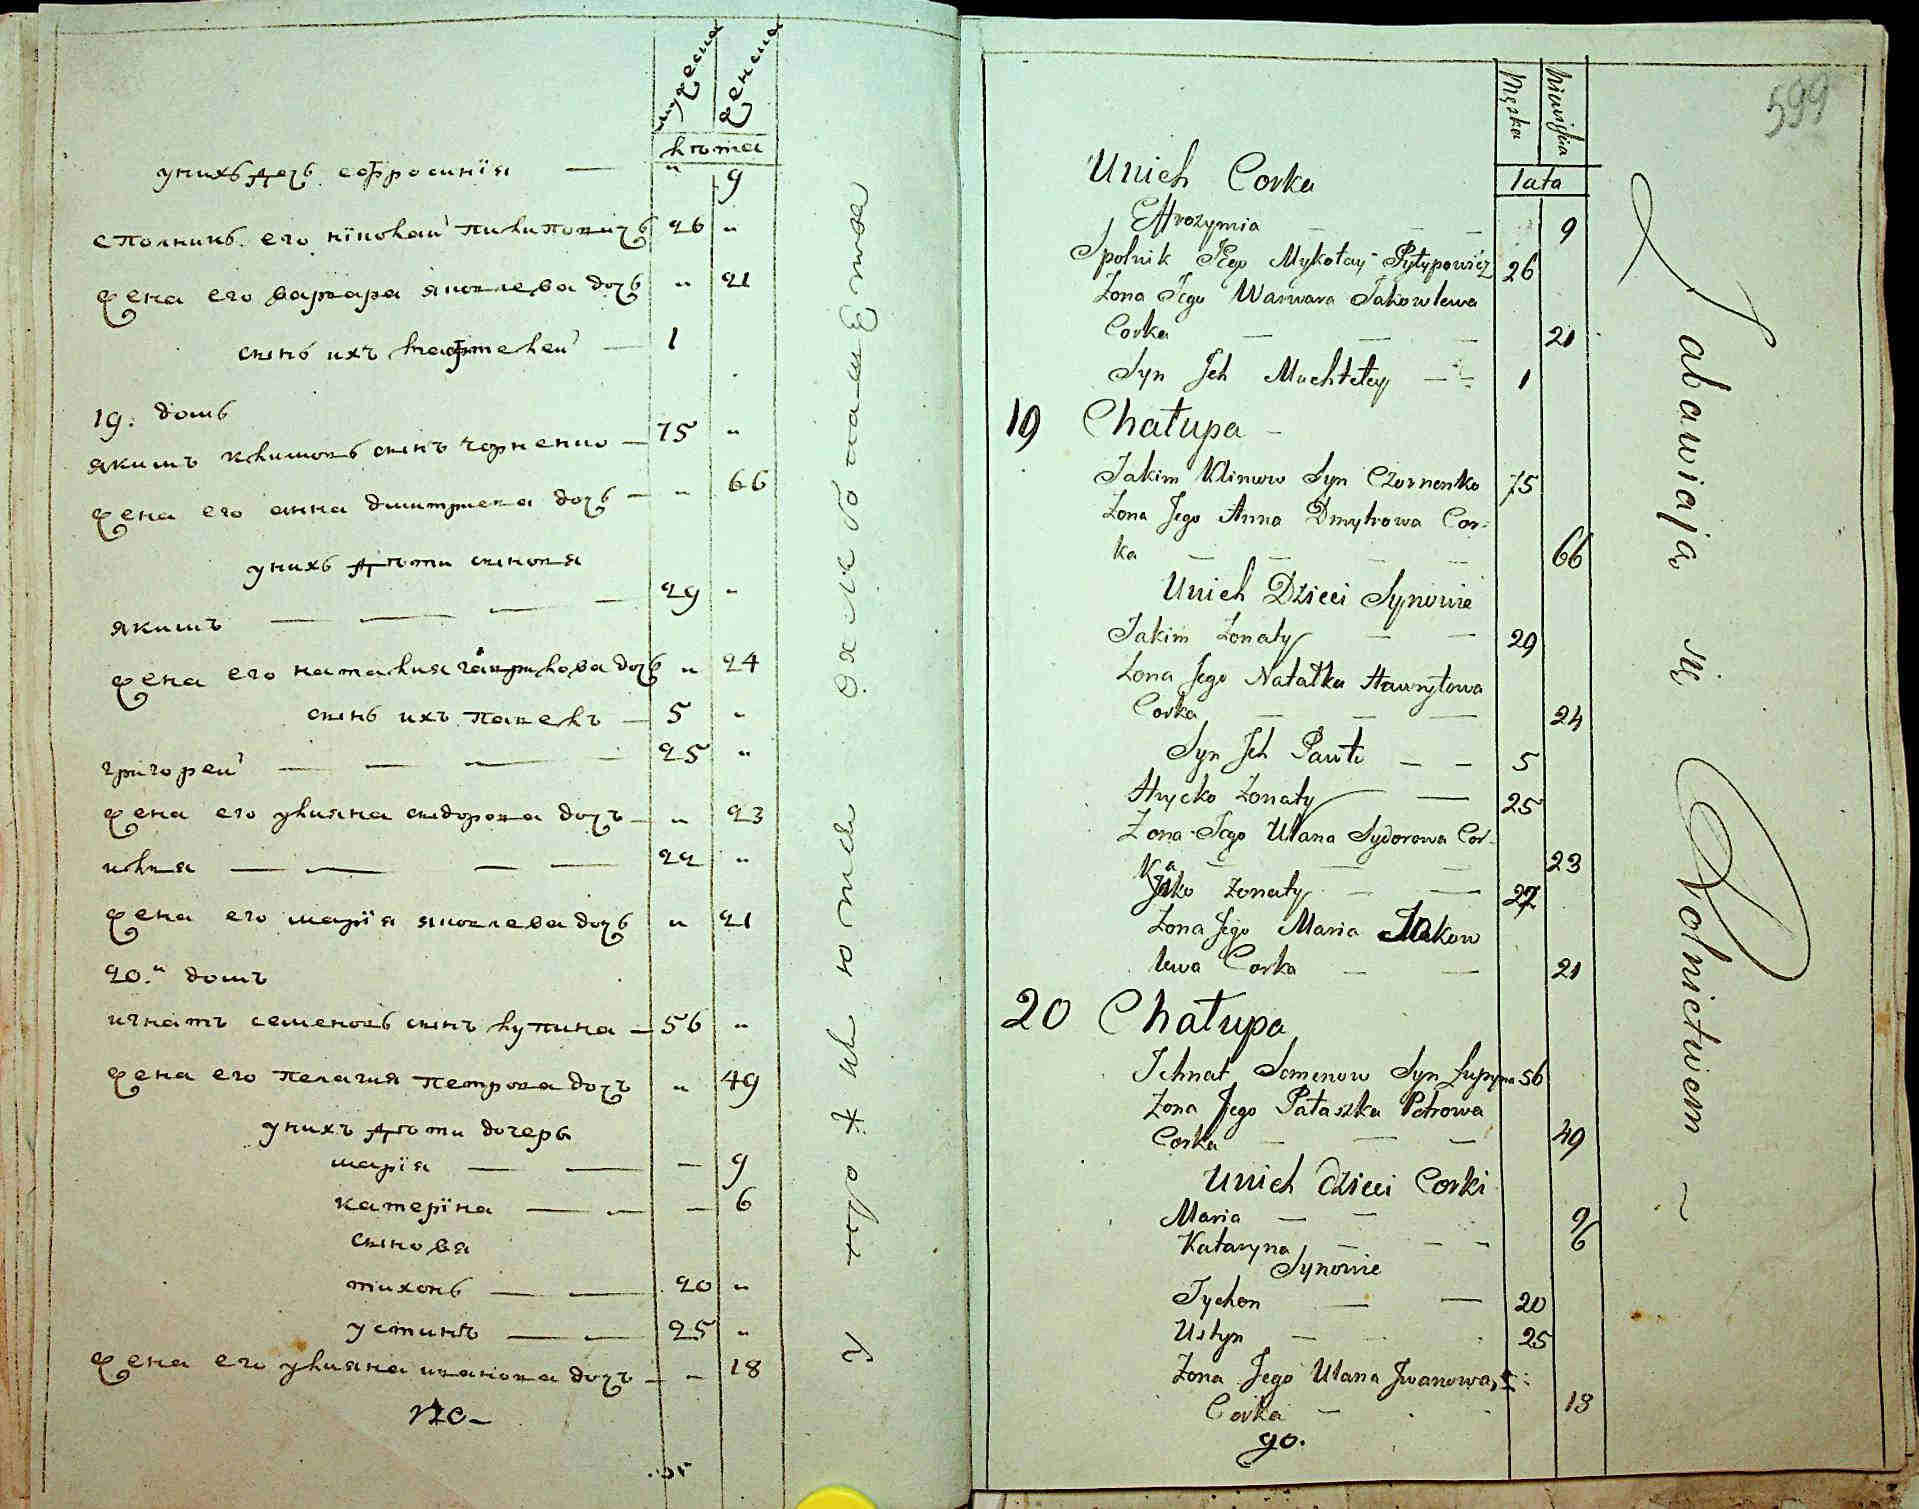 мужеска
женска
лѣта
у нихъ дочь ефросинія — " 9
сполникъ его николай пилиповичъ 26 "
жена его варвара яковлева дочъ " 21
синъ ихъ махтелей — 1
19: домъ
якимъ климовъ синъ чорненко — 75 "
жена его анна дмитрева дочъ — " 66
у нихъ дѣти синовя
якимъ — — — — 29 "
жена его наталия гаврилова дочъ " 24
синъ ихъ павелъ — 5 "
григорей — — — — 25 "
жена его улияна сидорова дочъ — " 23
илия — — — — 22 "
жена его марія яковлева дочъ " 21
20.й домъ
игнатъ семеновъ синъ лупина — 56 "
жена его пелагия петрова дочъ " 49
у нихъ дѣти дочеры
марія — — — 9
катеріна — — — 6
синовя
тихонъ — — 20 "
устинъ — — 25 "
жена его улияна иванова дочъ — " 18
хлебопашество
599
Męska
Niewiścia
lata
Unich Corka
Effrozymia — — 9
Spolnik Jego Mykołay Pyłypowicz 26
Zona Jego Warwara Jakowlewa
Corka — — — 21
Syn Jch Machteley — — 1
19 Chałupa —
Jakim Klimow Syn Czornenko 75
Zona Jego Anna Dmytrowa Cor-
ka — — — 66
Unich Dzieci Synowie
Jakim Zonaty — — 29
Zona Jego Natalka Hawryłowa
Corka — — — 24
Syn Jch Pawło — — 5
Hrycko Zonaty — — 25
Zona Jego Ulana Sydorowa Cor-
ka — — — 23
Jlko Zonaty — — 22
Zona Jego Maria Jakow
lewa Corka — — 21
20 Chałupa
Jchnat Semenow Syn Łupyna 56
Zona Jego Pałaszka Petrowa
Corka — — — 49
Unich dzieci Corki
Maria — — 9
Kataryna — — — 6
Synowie
Tychon — — 20
Ustyn — — 25
Zona Jego Ulana Jwanowa
Corka — 18
go.
Zabawiaja się Rolnictwem ~